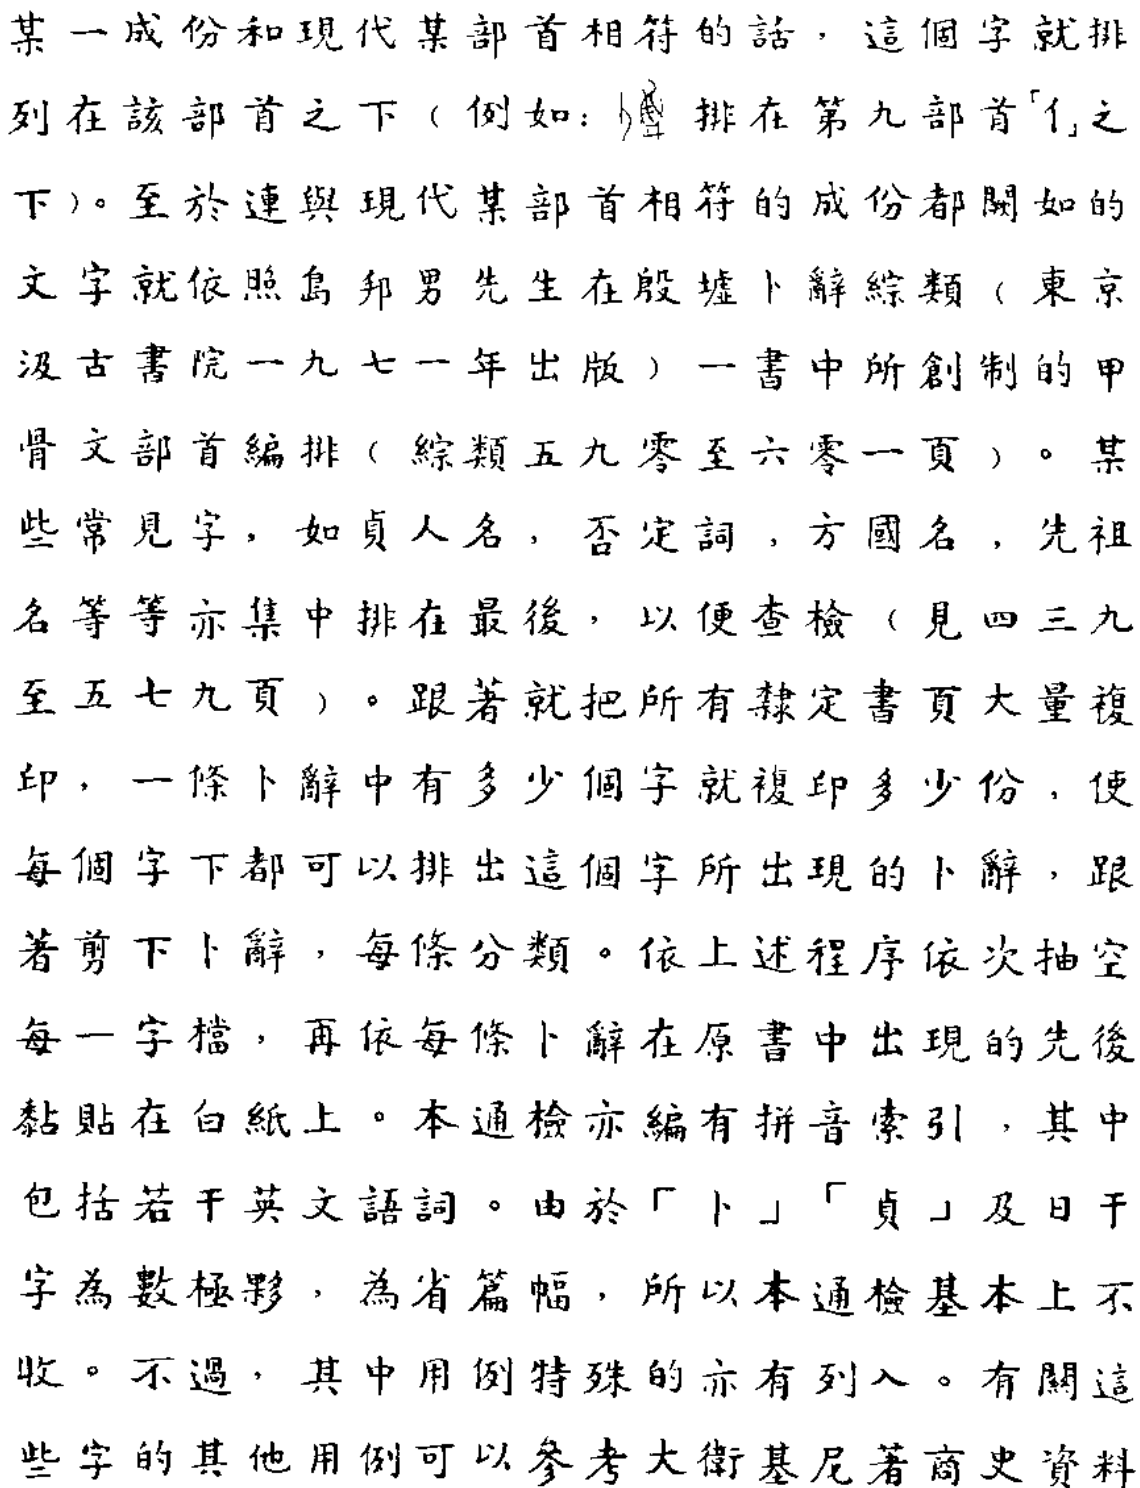 某一成份和現代某部首相符的話，這個字就排
列在該部首之下（例如：排在第九部首「亻」之
下）。至於連與現代某部首相符的成份都闕如的
文字就依照島邦男先生在殷墟卜辭綜類（東京
汲古書院一九七一年出版）一書中所創制的甲
骨文部首編排（綜類五九零至六零一頁）。某
些常見字，如貞人名，否定詞，方國名，先祖
名等等亦集中排在最後，以便查檢（見四三九
至五七九頁）。跟著就把所有隸定書頁大量複
印，一條卜辭中有多少個字就複印多少份，使
每個字下都可以排出這個字所出現的卜辭，跟
著剪下卜辭，每條分類。依上述程序依次抽空
每一字檔，再依每條卜辭在原書中出現的先後
黏貼在白紙上。本通檢亦編有拼音索引，其中
包括若干英文語詞。由於「卜」「貞」及日干
字為數極夥，為省篇幅，所以本通檢基本上不
收。不過，其中用例特殊的亦有列入。有關這
些字的其他用例可以參考大衛基尼著商史資料